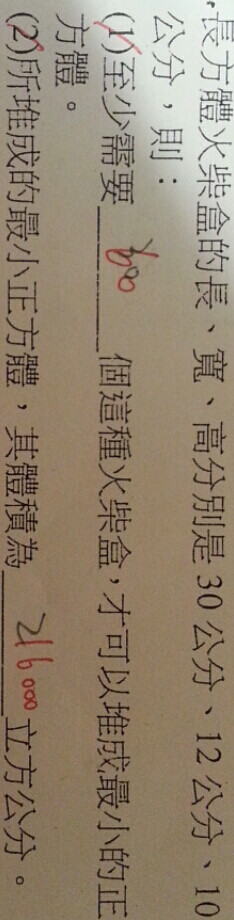 長方體火柴盒的長、寬、高分別是30公分、12公分、10
公分，則：
(1)至少需要 個這種火柴盒，才可以堆成最小的正
方體。
(2)所堆成的最小正方體，其體積為 216000 立方公分。